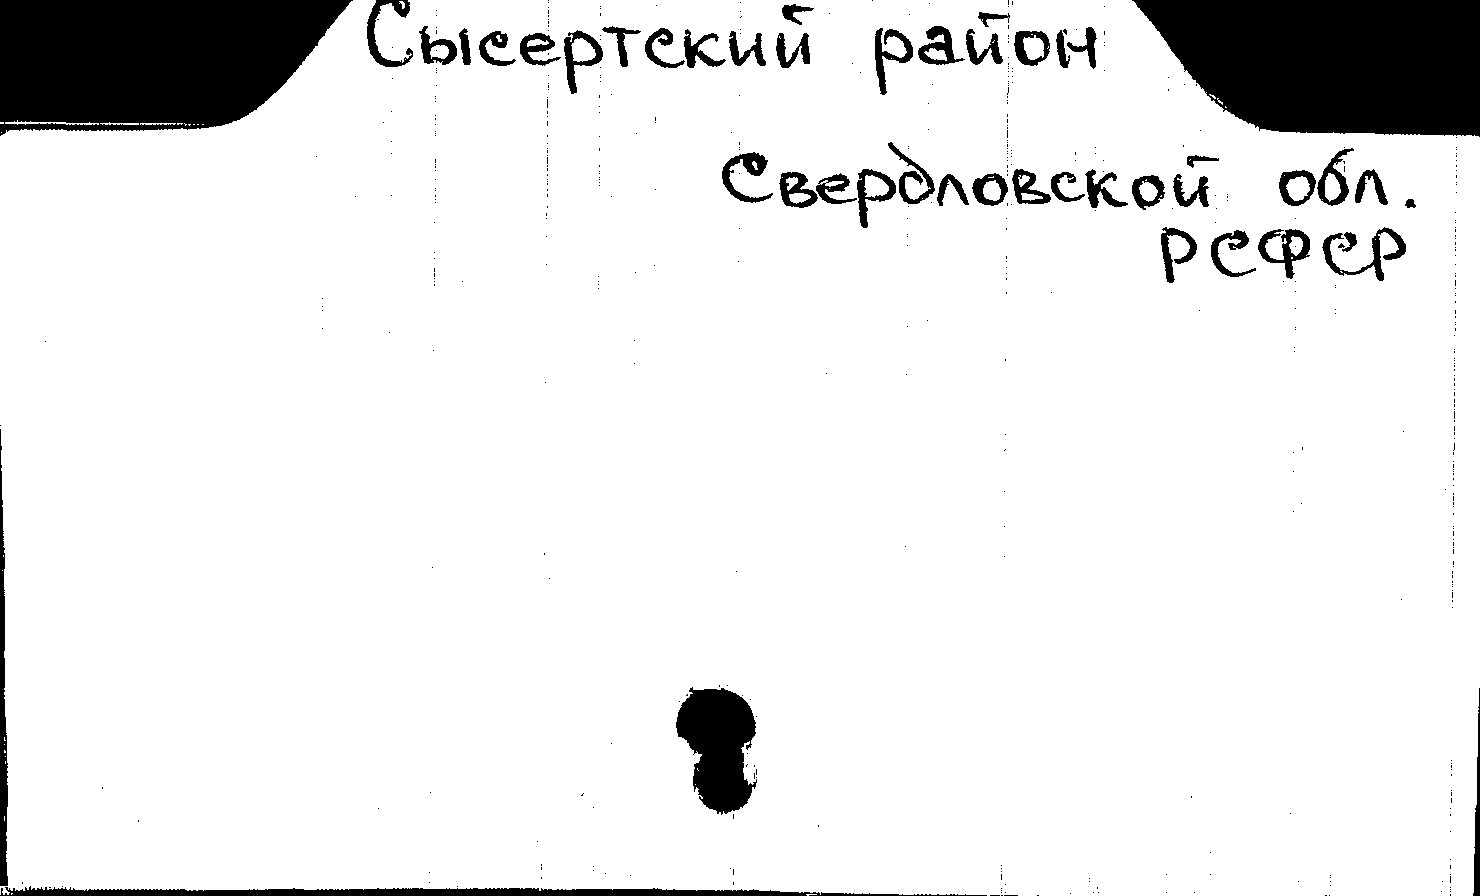 Сысертский район
Свердловской обл.
РСФСР